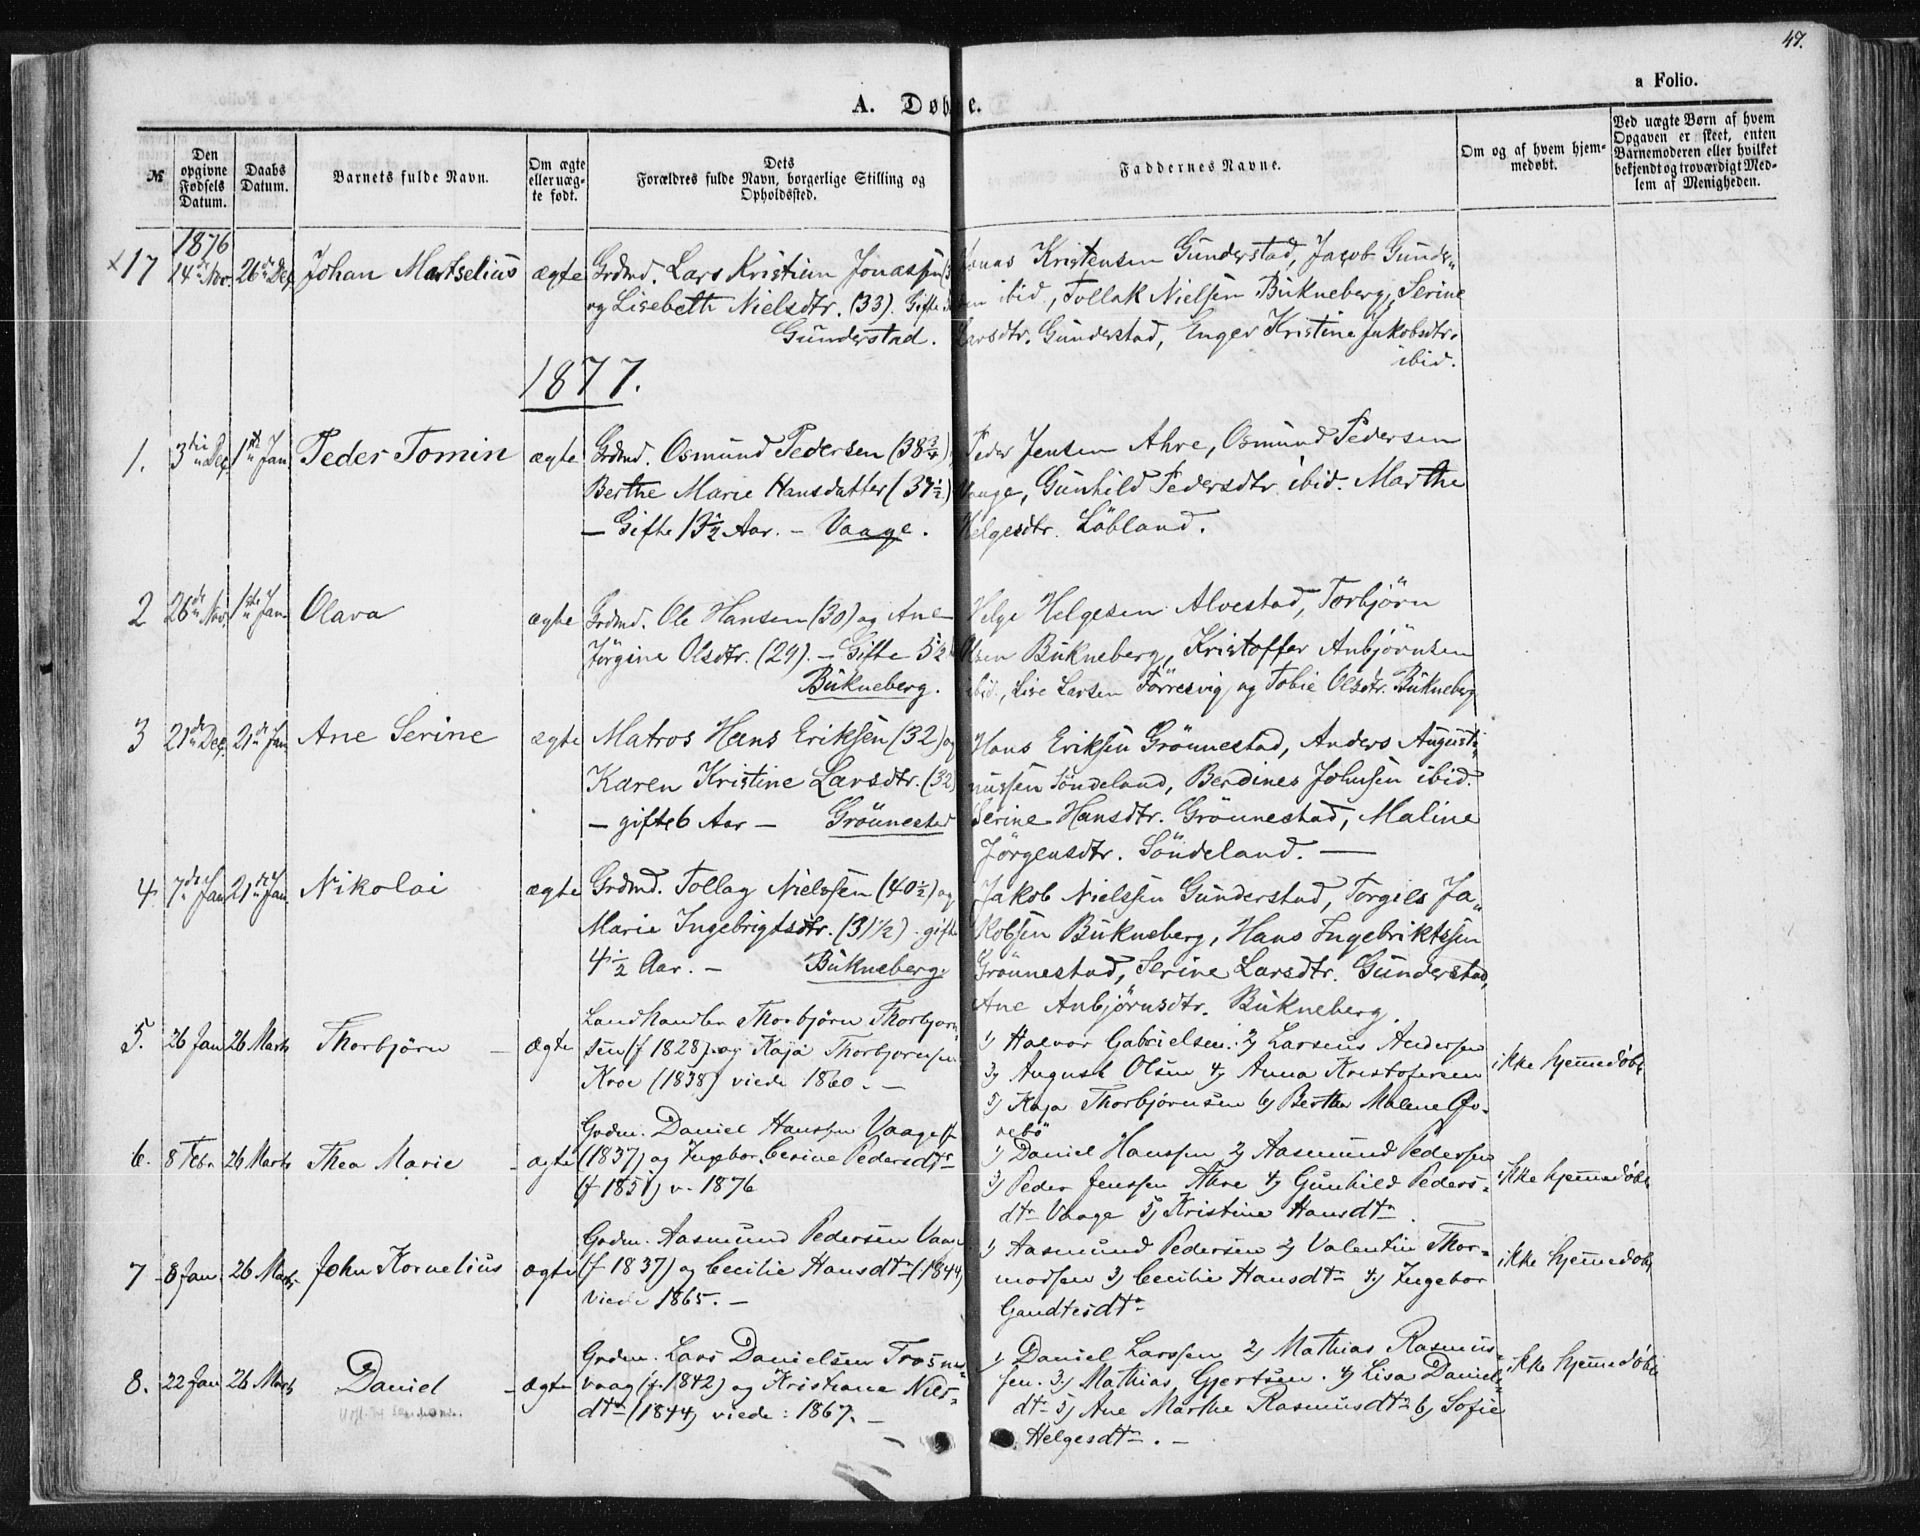 47.
a Folio.
A. Døbte.
№
Den opgivne Fødsels Datum.
Daabs Datum.
Barnets fulde Navn.
Om ægte eller uægte født.
Dets Forældres fulde Navn, borgerlige Stilling og Opholdssted.
Faddernes Navne.
Om og af hvem hjemmedøbt.
Ved uægte Børn af hvem Opgaven er skeet, enten Barnemoderen eller hvilket bekjendt og troværdigt Medlem af Menigheden.
1876
17 14de Nov. 26de Dec. Johan Martselius ægte
Grdmd. Lars Kristian Jonassen
og Lisebeth Nielsdtr. (33). Gifte
Gunderstad.
Jonas Kristensen Gunderstad, Jacob Gunder-
sen ibid., Tollak Nielsen Bukneberg, Serine
Larsdtr. Gunderstad, Enger Kristine Jakobsdtr.
ibid.
1877.
1. 3die Dec. 1ste Jan. Peder Tomin ægte
Grdmd. Osmund Pedersen (38 3/4)
Berthe Marie Hansdatter (37 1/2)
– Gifte 13 1/2 Aar. – Vaage.
Peder Jensen Ahre, Osmund Pedersen
Vaage, Gunhild Pedersdtr. ibid. Marthe
Helgesdtr. Löbland.
2 26de Nov. 1ste Jan. Olava ægte
Grdmd. Ole Hansen (30) og Ane
Jörgine Olsdtr. (29). – Gifte 5 1/2
Bukneberg.
Helge Helgesen Alvestad, Torbjörn
Olsen Bukneberg, Kristoffer Anbjörnsen
ibid., Live Larsen Förresvig, og Tobie Olsdtr. Bukneberg
3 21de Dec. 21de Jan. Ane Serine ægte
Matros Hans Eriksen (32) og
Karen Kristine Larsdtr. (32)
– gifte 6 Aar – Grönnestad
Hans Eriksen Grönnestad, Anders Augusti-
nussen Söndeland, Berdines Johnsen ibid.
Serine Hansdtr. Grönnestad, Maline
Jörgensdtr. Söndeland. –
4 7de Jan 21de Jan. Nikolai ægte
Grdmd. Tollag Nielssen (40 1/2) og
Marie Ingebrigtsdtr. (31 1/2). gifte
4 1/2 Aar. – Bukneberg.
Jakob Nielssen Gunderstad, Torgils Ja-
kobsen Bukneberg, Hans Ingebriktssen
Grönnestad, Serine Larsdtr. Gunderstad,
Ane Anbjörnsdtr. Bukneberg.
5. 26 Jan 26 Marts Thorbjörn – ægte
Landhandler Thorbjörn Thorbjörn-
sen (f 1828) og Kaja Thorbjornsen
Kroe (1838) viede 1860. –
1) Halvor Gabrielsen. 2) Larsens Andersen
3) August Olsen 4) Anna Kristofersen
5) Kaja Thorbjörnsen 6) Berthe Malene Go-
rebö
ikke hjemmedøbt
6. 8 Febr 26 Marts Thea Marie – ægte
Grdm. Daniel Hanssen Vaage (f
(1837) og Ingebor Cerine Pedersdtr
(f 1851) v. 1876
1) Daniel Hanssen 2) Aasmund Pedersen
3) Peder Jenssen Ahre 4) Gunhild Peders-
dtr Vaage 5) Kristine Hansdtr.
ikke hjemmedøbt
7 8 Jan. 26 Marts John Kornelius ægte
Grdm. Aasmund Pedersen Vaage
(f 1837) og Cecilie Hansdtr (1844)
viede 1865. –
1) Aasmund Pedersen 2) Valentin Thor-
modsen 3) Cecilie Hansdtr 4) Ingebor
Gaudtesdtr
ikke hjemmedøbt
8. 22 Jan 26 Marts Daniel – ægte
Grdm. Lars Danielsen Trosne-
vaag (f. 1842) og Kristiane Niels-
dtr (1844) viede: 1867. –
1) Daniel Larssen 2) Mathias Rasmus-
sen. 3) Mathias Gjertsen. 4) Lisa Daniels-
dtr 5) Ane Marthe Rasmusdtr 6) Sofie
Helgesdtr. –
ikke hjemmedøbt